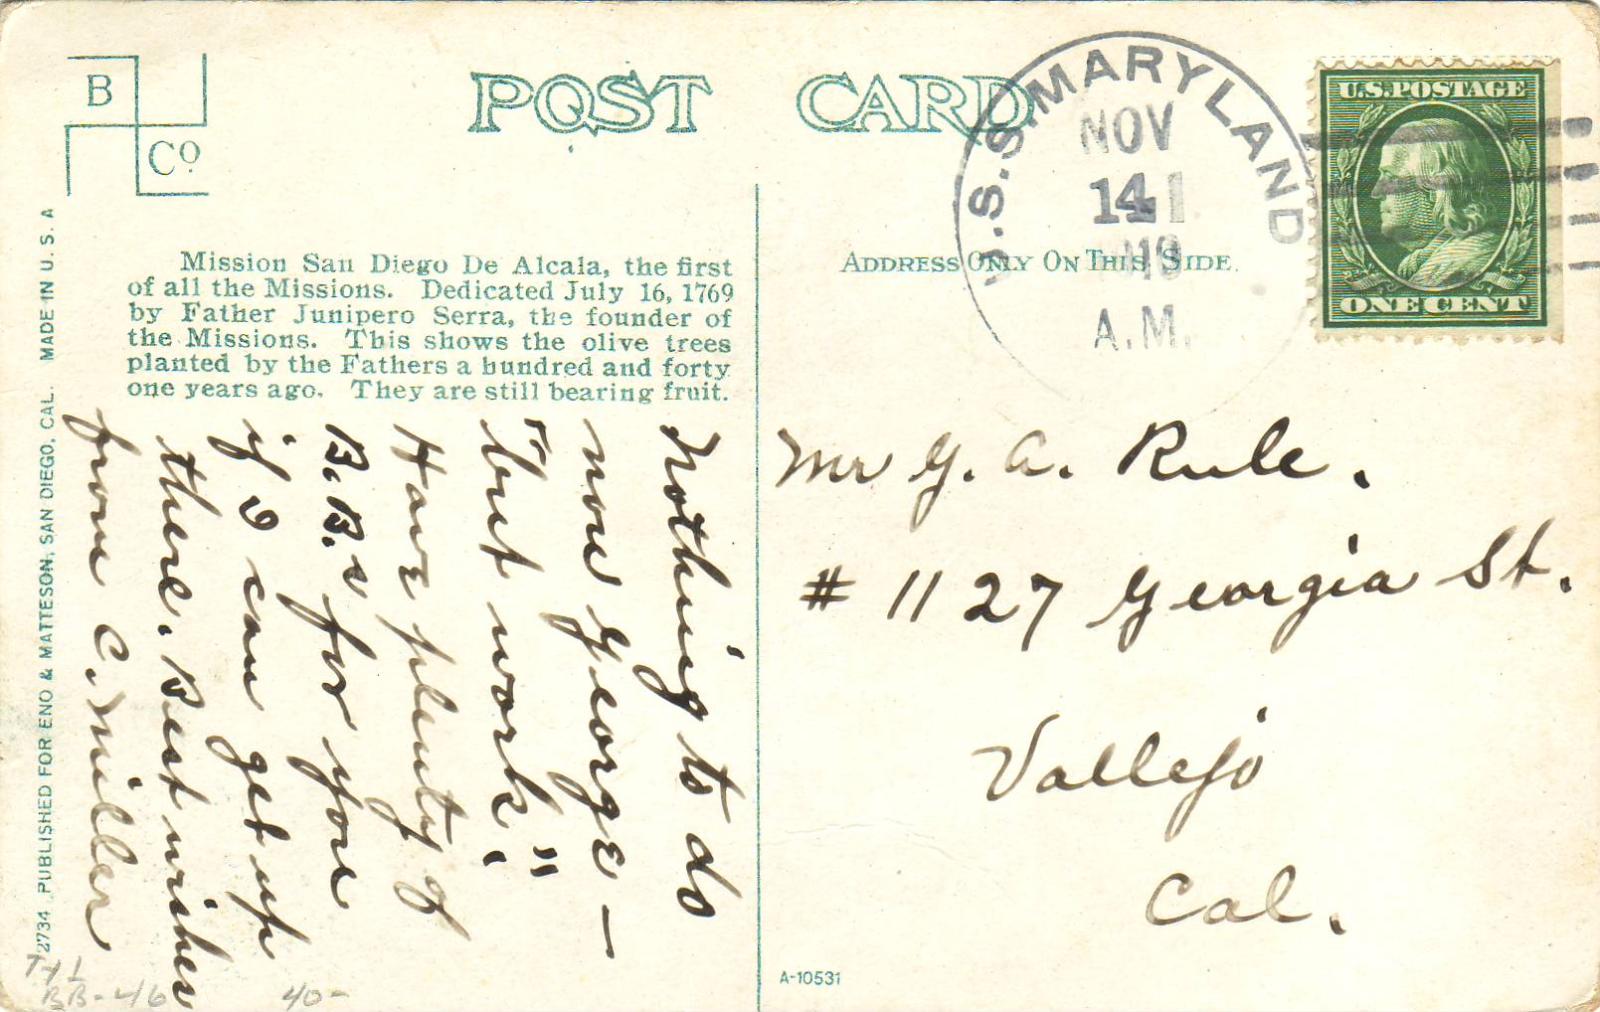 B
Co
POST CARD
U.S.S. MARYLAND
NOV
14
A.M.
U.S. POSTAGE
ONE CENT
Mission San Diego De Alcala, the first
of all the Missions. Dedicated July 16, 1769
by Father Junipero Serra, the founder of
the Missions. This shows the olive trees
planted by the Fathers a hundred and forty
one years ago. They are still bearing fruit.
ADDRESS ONLY ON THIS SIDE.
2734 PUBLISHED FOR ENO & MATTESON, SAN DIEGO, CAL. MADE IN U. S. A
Nothing to do
now George —
"but work."
Have plenty of
B.B.s for you
if I can get up
there. Best wishes
from C. Miller
Mr G. A. Rule.
# 1127 Georgia St.
Vallejo
Cal.
A-10531
BB-46
40-